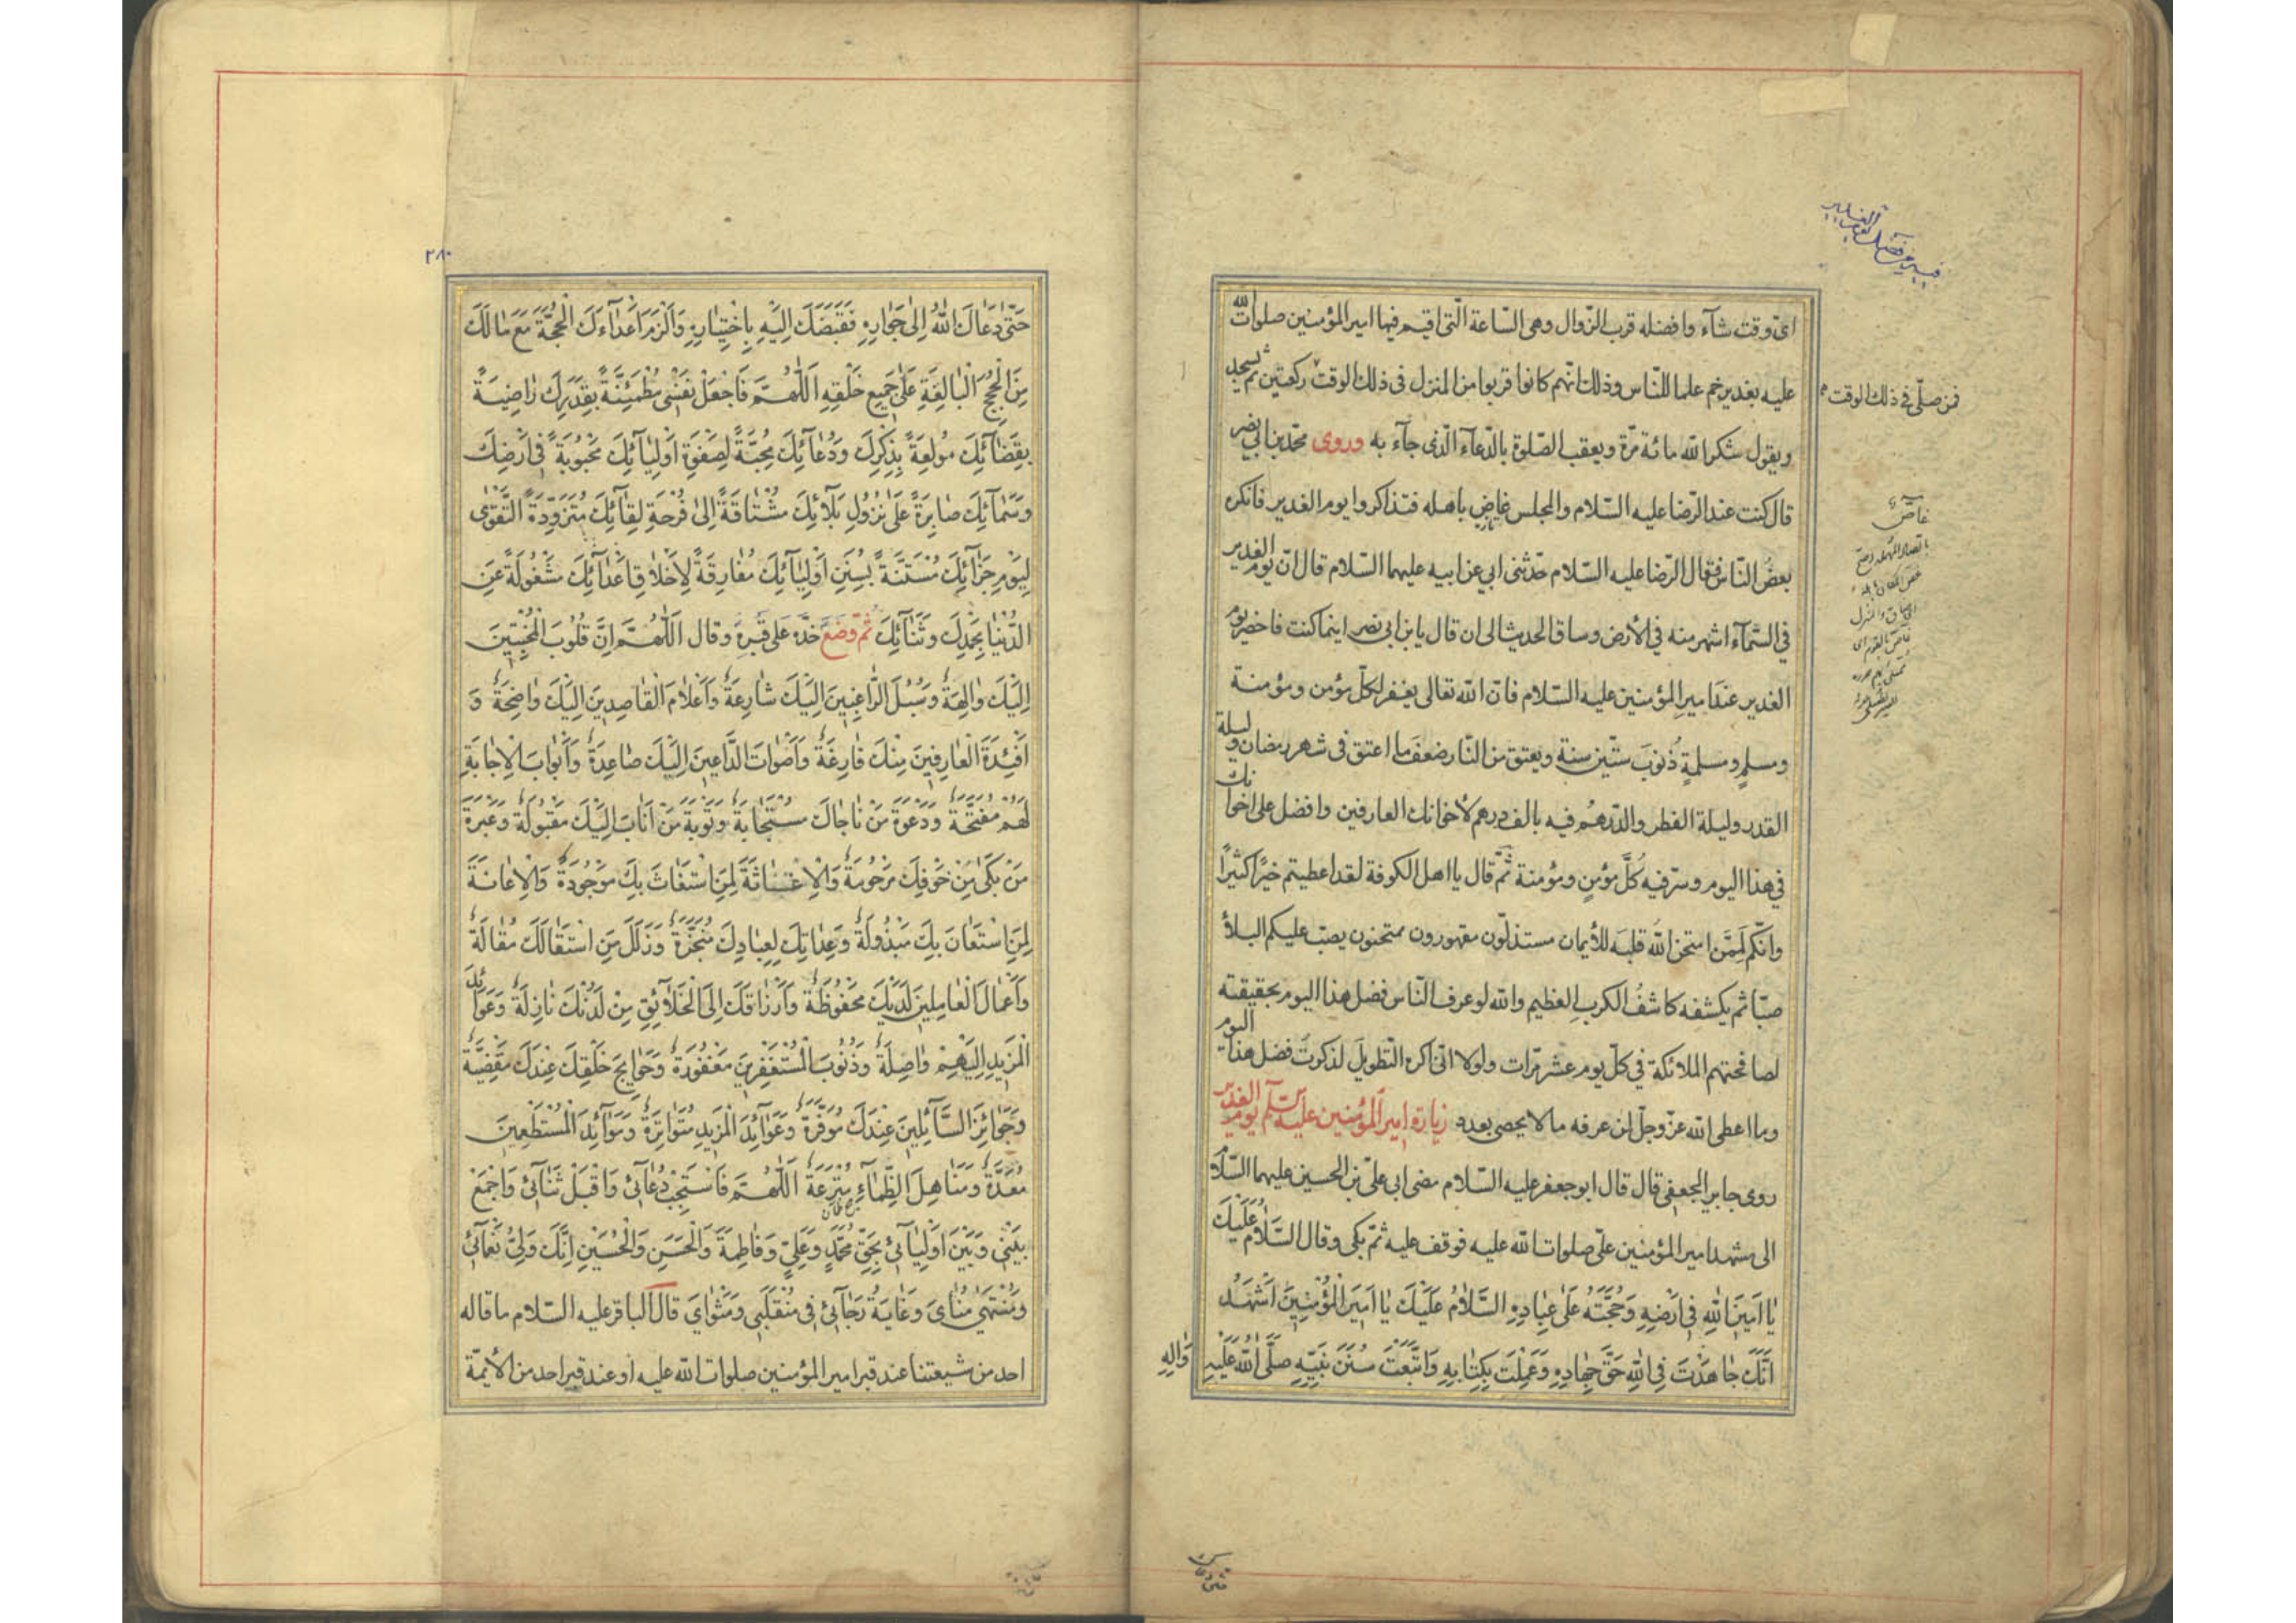 فمن صلّى فى ذلك الوقت
غاصّ
اىّ وقت شآء وافضله قرب الزّوال وهى السّاعة الّتى اقيم فيها امير المؤمنين صلوات الله
عليه بغدير خم علما للنّاس وذلك انّهم كانوا قربوا من المنزل فى ذلك الوقت ركعتين ثم يسجد
ويقول شكرا لله مائة مرّة ويعقب الصّلوة بالدّعآء الّذى جآء به وروى محمّد بن ابي نصر
قال كنت عند الرّضا عليه السّلام والمجلس غاص باهله فتذاكروا يوم الغدير فانكره
بعضُ النّاس فقال الرّضا عليه السّلام حدّثنى ابي عن ابيه عليهما السّلام قال انّ يوم الغدير
فى السّمآء اشهر منه فى الأرض وساق الحديث الى ان قال يا بن ابى نصر اينما كنت فاحضر يوم
الغدير عند امير المؤمنين عليه السّلام فانّ الله تعالى يغفر لكلّ مؤمن ومؤمنة
ومسلمٍ ومسلمةٍ ذُنوبَ ستّين سنة ويعتق من النّار ضعفَ ما اعتق فى شهر رمضان وليلة
القدر وليلة الفطر والدّرهم فيه بالف درهم لأخوانك العارفين وافضل على اخوانك
فى هذا اليوم وسرّ فيه كُلَّ مؤمنٍ ومؤمنة ثمّ قال يا اهل الكوفة لقد اعطيتم خيرًا كثيرًا
وانّكم لَمِمَّن امتحن الله قلبَه للأيمان مستذلّون مقهورون ممتحنون يصبّ عليكم البلاءُ
صبّا ثم يكشفه كاشفُ الكربِ العظيم والله لو عرف النّاس فضل هذا اليوم بحقيقته
لصافحتهم الملائكة فى كلّ يوم عشر مرّات ولولا انّى اكره التّطويلَ لذكرتَ فضل هذا اليوم
وما اعطى الله عزّ وجلّ لمن عرفه ما لا يحصى بعدد زيارة امير المؤمنين عليه السّلم يوم الغدير
روى جابر الجعفى قال قال ابو جعفر عليه السّلام مضى ابى علىّ بن الحسين عليهما السّلام
الى مشهد امير المؤمنين علىّ صلوات الله عليه فوقف عليه ثمّ بكى وقال السَّلامُ عَلَيْكَ
يٰا اَمينَ اللهِ فى اَرْضِهِ وَحُجَّتَهُ عَلىٰ عِبٰادِهِ السَّلاٰمُ عَلَيْكَ يٰا اَميرَ الْمُؤْمِنينَ اَشْهَدُ
اَنَّكَ جٰاهَدْتَ فِى اللهِ حَقَّ جِهٰادِهِ وَعَمِلْتَ بِكِتٰابِهِ وَاتَّبَعْتَ سُنَنَ نَبِيِّهِ صَلَّى اللهُ عَلَيْهِ
وَآلِهِ
٢٨٠
حَتّىٰ دَعٰاكَ اللهُ اِلىٰ جِوٰارِهِ فَقَبَضَكَ اِلَيْهِ بِاخْتِيٰارِهِ وَاَلْزَمَ اَعْدٰاءَكَ الْحُجَّةَ مَعَ مٰا لَكَ
مِنَ الْحُجَجِ الْبٰالِغَةِ عَلىٰ جَميعِ خَلْقِهِ اَللّٰهُمَّ فَاجْعَلْ نَفْسى مُطْمَئِنَّةً بِقَدَرِكَ رٰاضِيَةً
بِقَضٰائِكَ مُولَعَةً بِذِكْرِكَ وَدُعٰائِكَ مُحِبَّةً لِصَفْوَةِ اَوْلِيٰآئِكَ مَحْبُوبَةً فى اَرْضِكَ
وَسَمٰآئِكَ صٰابِرَةً عَلىٰ نُزُولِ بَلاٰئِكَ مُشْتٰاقَةً اِلىٰ فَرْحَةِ لِقٰآئِكَ مُتَزَوِّدَةً التَّقْوىٰ
لِيَوْمِ جَزٰآئِكَ مُسْتَنَّةً بِسُنَنِ اَوْلِيٰآئِكَ مُفٰارِقَةً لِاَخْلاٰقِ اَعْدٰآئِكَ مَشْغُولَةً عَنِ
الدُّنْيٰا بِحَمْدِكَ وَثَنٰآئِكَ ثمّ وضع خدّه على قبره وقال اَللّٰهُمَّ اِنَّ قُلُوبَ الْمُخْبِتينَ
اِلَيْكَ وٰالِهَةٌ وَسُبُلَ الرّٰاغِبينَ اِلَيْكَ شٰارِعَةٌ وَاَعْلاٰمَ الْقٰاصِدينَ اِلَيْكَ وٰاضِحَةٌ وَ
اَفْئِدَةَ الْعٰارِفينَ مِنْكَ فٰازِعَةٌ وَاَصْوٰاتَ الدّٰاعينَ اِلَيْكَ صٰاعِدَةٌ وَاَبْوٰابَ الْاِجٰابَةِ
لَهُمْ مُفَتَّحَةٌ وَدَعْوَةَ مَنْ نٰاجٰاكَ مُسْتَجٰابَةٌ وَتَوْبَةَ مَنْ اَنٰابَ اِلَيْكَ مَقْبُولَةٌ وَعَبْرَةَ
مَنْ بَكىٰ مِنْ خَوْفِكَ مَرْحُومَةٌ وَالْاِغٰاثَةَ لِمَنِ اسْتَغٰاثَ بِكَ مَوْجُودَةٌ وَالْاِعٰانَةَ
لِمَنِ اسْتَعٰانَ بِكَ مَبْذُولَةٌ وَعِدٰاتِكَ لِعِبٰادِكَ مُنْجَزَةٌ وَزَلَلَ مَنِ اسْتَقٰالَكَ مُقٰالَةٌ
وَاَعْمٰالَ الْعٰامِلينَ لَدَيْكَ مَحْفُوظَةٌ وَاَرْزٰاقَكَ اِلَى الْخَلاٰئِقِ مِنْ لَدُنْكَ نٰازِلَةٌ وَعَوٰائِدَ
الْمَزيدِ اِلَيْهِمْ وٰاصِلَةٌ وَذُنُوبَ الْمُسْتَغْفِرينَ مَغْفُورَةٌ وَحَوٰايِجَ خَلْقِكَ عِنْدَكَ مَقْضِيَّةٌ
وَجَوٰائِزَ السّٰآئِلينَ عِنْدَكَ مُوَفَّرَةٌ وَعَوٰآئِدَ الْمَزيدِ مُتَوٰاتِرَةٌ وَمَوٰآئِدَ الْمُسْتَطْعِمينَ
مُعَدَّةٌ وَمَنٰاهِلَ الظِّمٰآءِ مُتْرَعَةٌ اَللّٰهُمَّ فَاسْتَجِبْ دُعٰآئى وَاقْبَلْ ثَنٰآئى وَاجْمَعْ
بَيْنى وَبَيْنَ اَوْلِيٰآئى بِحَقِّ مُحَمَّدٍ وَعَلِىٍّ وَفٰاطِمَةَ وَالْحَسَنِ وَالْحُسَيْنِ اِنَّكَ وَلِىُّ نَعْمٰآئى
وَمُنْتَهىٰ مُنٰاىَ وَغٰايَةُ رَجٰآئى فى مُنْقَلَبى وَمَثْوٰاىَ قال الباقر عليه السّلام ما قاله
احد من شيعتنا عند قبر امير المؤمنين صلوات الله عليه او عند قبر احد من الأيمّة